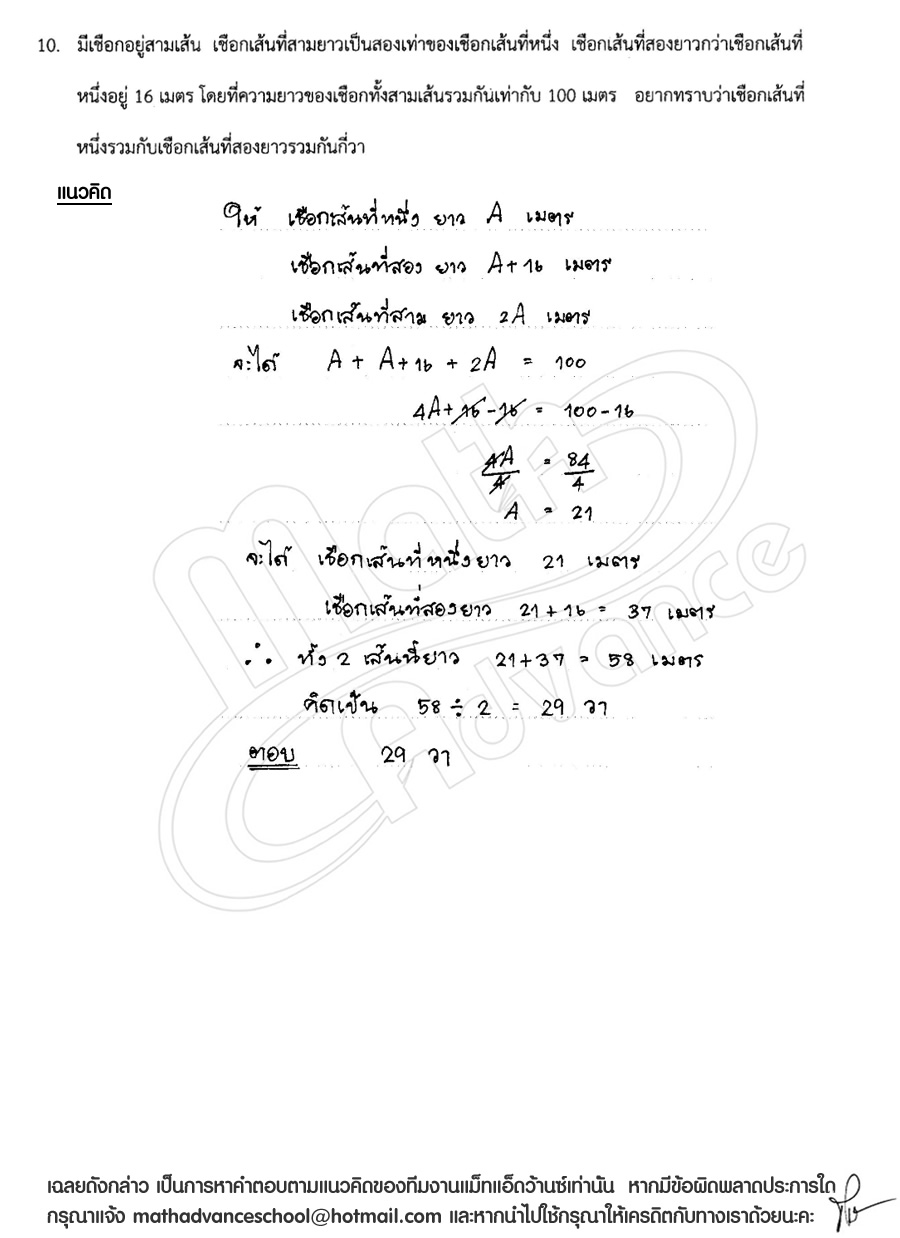 10. มีเชือกอยู่สามเส้น เชือกเส้นที่สามยาวเป็นสองเท่าของเชือกเส้นที่หนึ่ง เชือกเส้นที่สองยาวกว่าเชือกเส้นที่
หนึ่งอยู่ 16 เมตร โดยที่ความยาวของเชือกทั้งสามเส้นรวมกันเท่ากับ 100 เมตร อยากทราบว่าเชือกเส้นที่
หนึ่งรวมกับเชือกเส้นที่สองยาวรวมกันกี่วา
แนวคิด
ให้ เชือกเส้นที่หนึ่ง ยาว A เมตร
เชือกเส้นที่สอง ยาว A+16 เมตร
เชือกเส้นที่สาม ยาว 2A เมตร
จะได้ A + A+16 + 2A = 100
4A+16-16 = 100-16
4A/4 = 84/4
A = 21
จะได้ เชือกเส้นที่หนึ่งยาว 21 เมตร
เชือกเส้นที่สองยาว 21+16 = 37 เมตร
∴ ทั้ง 2 เส้นนี้ยาว 21+37 = 58 เมตร
คิดเป็น 58 ÷ 2 = 29 วา
ตอบ 29 วา
Math Advance
เฉลยดังกล่าว เป็นการหาคำตอบตามแนวคิดของทีมงานแม็ทแอ็ดว้านซ์เท่านั้น หากมีข้อผิดพลาดประการใด
กรุณาแจ้ง mathadvanceschool@hotmail.com และหากนำไปใช้กรุณาให้เครดิตกับทางเราด้วยนะคะ